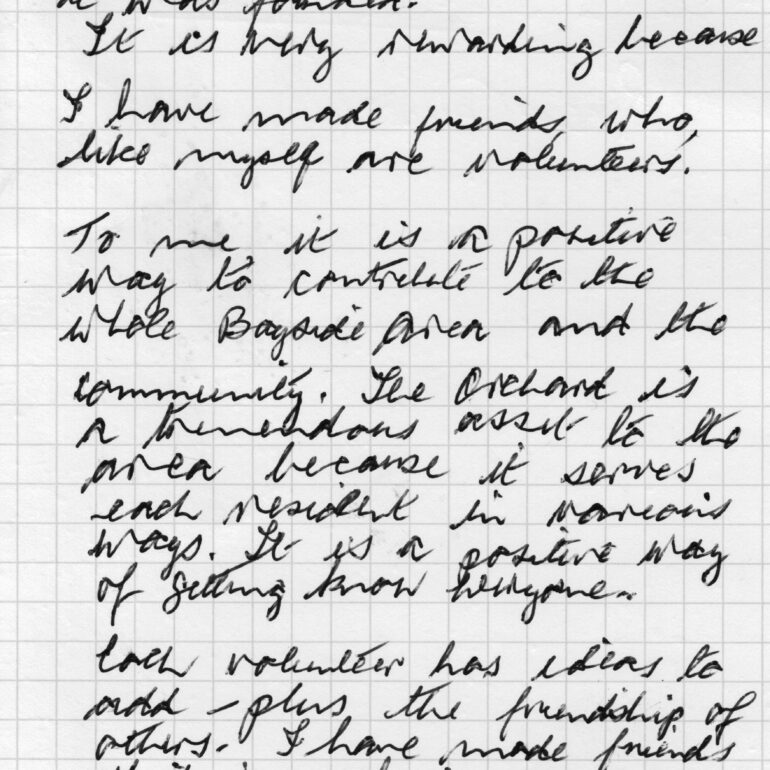 it was formed.
It is very rewarding because
I have made friends, who,
like myself are volunteers.
To me, it is a positive
way to contribute to the
whole Bayside Area and the
community. The Orchard is
a tremendous asset to the
area because it serves
each resident in various
ways. It is a positive way
of getting know everyone.
Each volunteer has ideas to
add - plus the friendship of
others. I have made friends